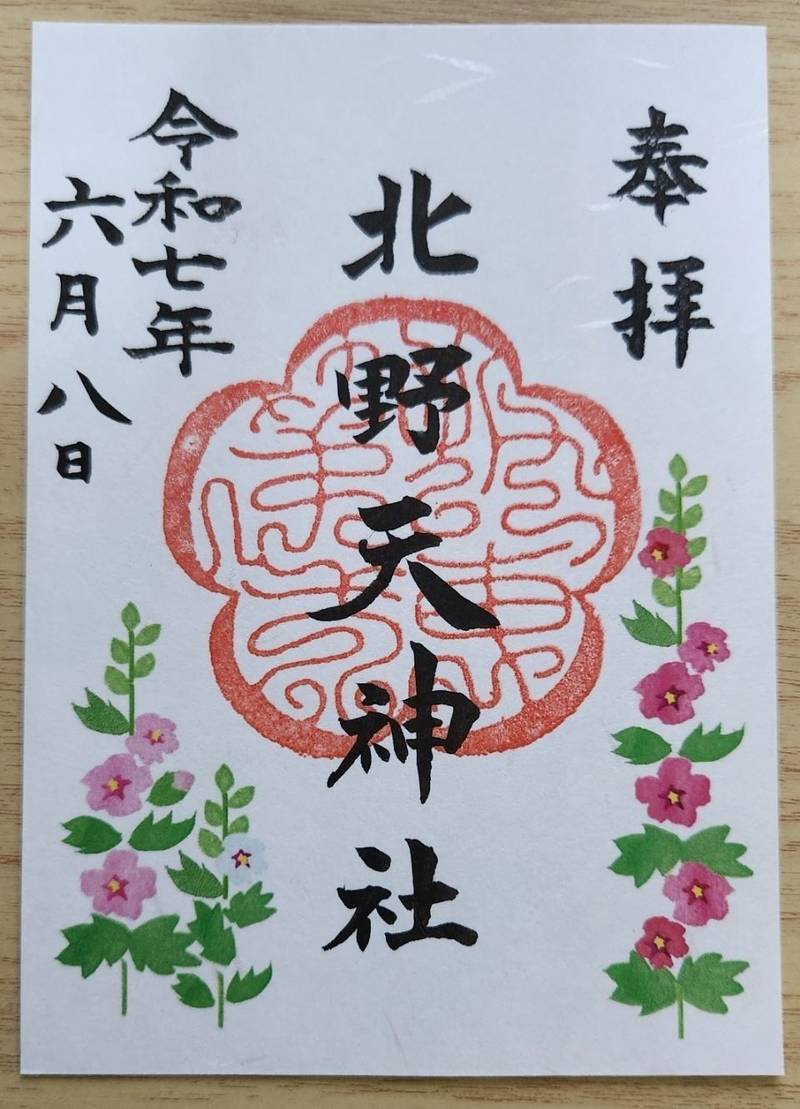 奉拝
北野天神社
令和七年
六月八日